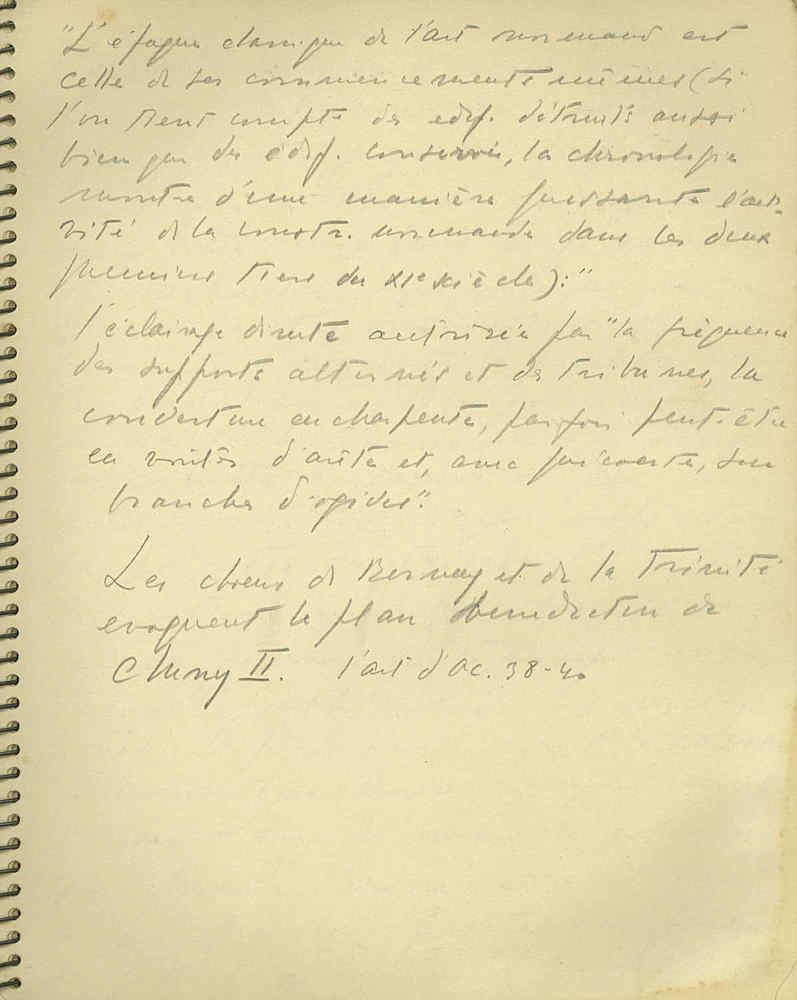 "L'époque classique de l'art normand est
celle de ses commencements mêmes (si
l'on tient compte des edif. détruits aussi
bien que des édif. conservés, la chronologie
montre d'une manière puissante l'acti-
vité de la constr. normande dans les deux
premiers tiers du XIe siècle):"
l'éclairage directe autorisée par "la fréquence
des supports alternés et des tribunes, la
couverture en charpente, parfois peut-être
en voûtes d'arête et, avec precocité, sur
branches d'ogives".
Les choeurs de Bernay et de la Trinité
evoquent le plan benedictin de
Cluny II. l'art d'Oc. 38-40